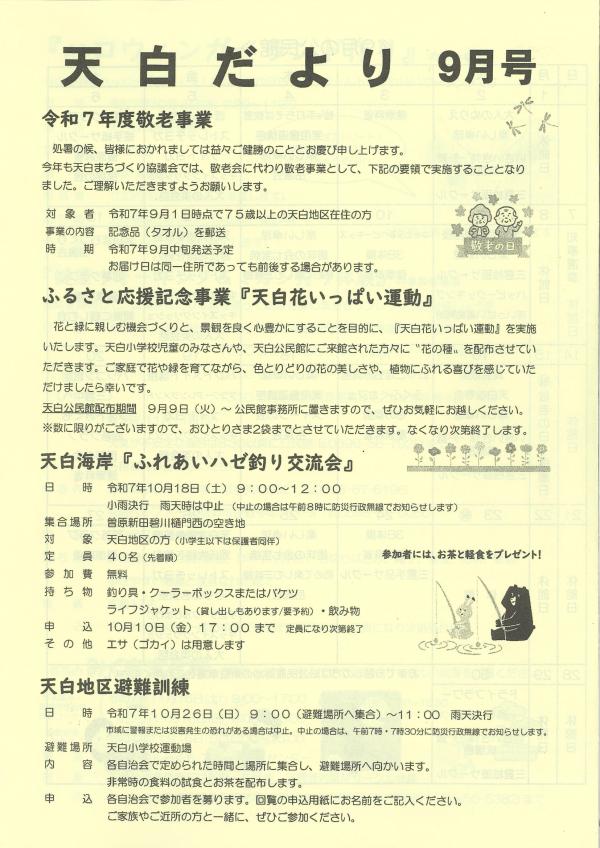 天白だより 9月号
令和7年度敬老事業
処暑の候、皆様におかれましては益々ご健勝のこととお慶び申し上げます。
今年も天白まちづくり協議会では、敬老会に代わり敬老事業として、下記の要領で実施することとなり
ました。ご理解いただきますようお願いします。
対象者 令和7年9月1日時点で75歳以上の天白地区在住の方
事業の内容 記念品(タオル)を郵送
時期 令和7年9月中旬発送予定
お届け日は同一住所であっても前後する場合があります。
敬老の日
ふるさと応援記念事業『天白花いっぱい運動』
花と緑に親しむ機会づくりと、景観を良く心豊かにすることを目的に、『天白花いっぱい運動』を実施
いたします。天白小学校児童のみなさんや、天白公民館にご来館された方々に“花の種”を配布させてい
ただきます。ご家庭で花や緑を育てながら、色とりどりの花の美しさや、植物にふれる喜びを感じていた
だけましたら幸いです。
天白公民館配布期間 9月9日(火)~公民館事務所に置きますので、ぜひお気軽にお越しください。
※数に限りがございますので、おひとりさま2袋までとさせていただきます。なくなり次第終了します。
天白海岸『ふれあいハゼ釣り交流会』
日時 令和7年10月18日(土) 9:00~12:00
小雨決行 雨天時は中止 (中止の場合は午前8時に防災行政無線でお知らせします)
集合場所 曽原新田碧川樋門西の空き地
対象 天白地区の方(小学生以下は保護者同伴)
定員 40名(先着順)
参加費 無料
持ち物 釣り具・クーラーボックスまたはバケツ
ライフジャケット(貸し出しもあります/要予約)・飲み物
申込 10月10日(金)17:00まで 定員になり次第終了
その他 エサ(ゴカイ)は用意します
参加者には、お茶と軽食をプレゼント!
天白地区避難訓練
日時 令和7年10月26日(日) 9:00(避難場所へ集合)~11:00 雨天決行
市域に警報または災害発生の恐れがある場合は中止。中止の場合は、午前7時・7時30分に防災行政無線でお知らせします。
避難場所 天白小学校運動場
内容 各自治会で定められた時間と場所に集合し、避難場所へ向かいます。
非常時の食料の試食とお茶を配布します。
申込 各自治会で参加者を募ります。回覧の申込用紙にお名前をご記入ください。
ご家族やご近所の方と一緒に、ぜひご参加ください。